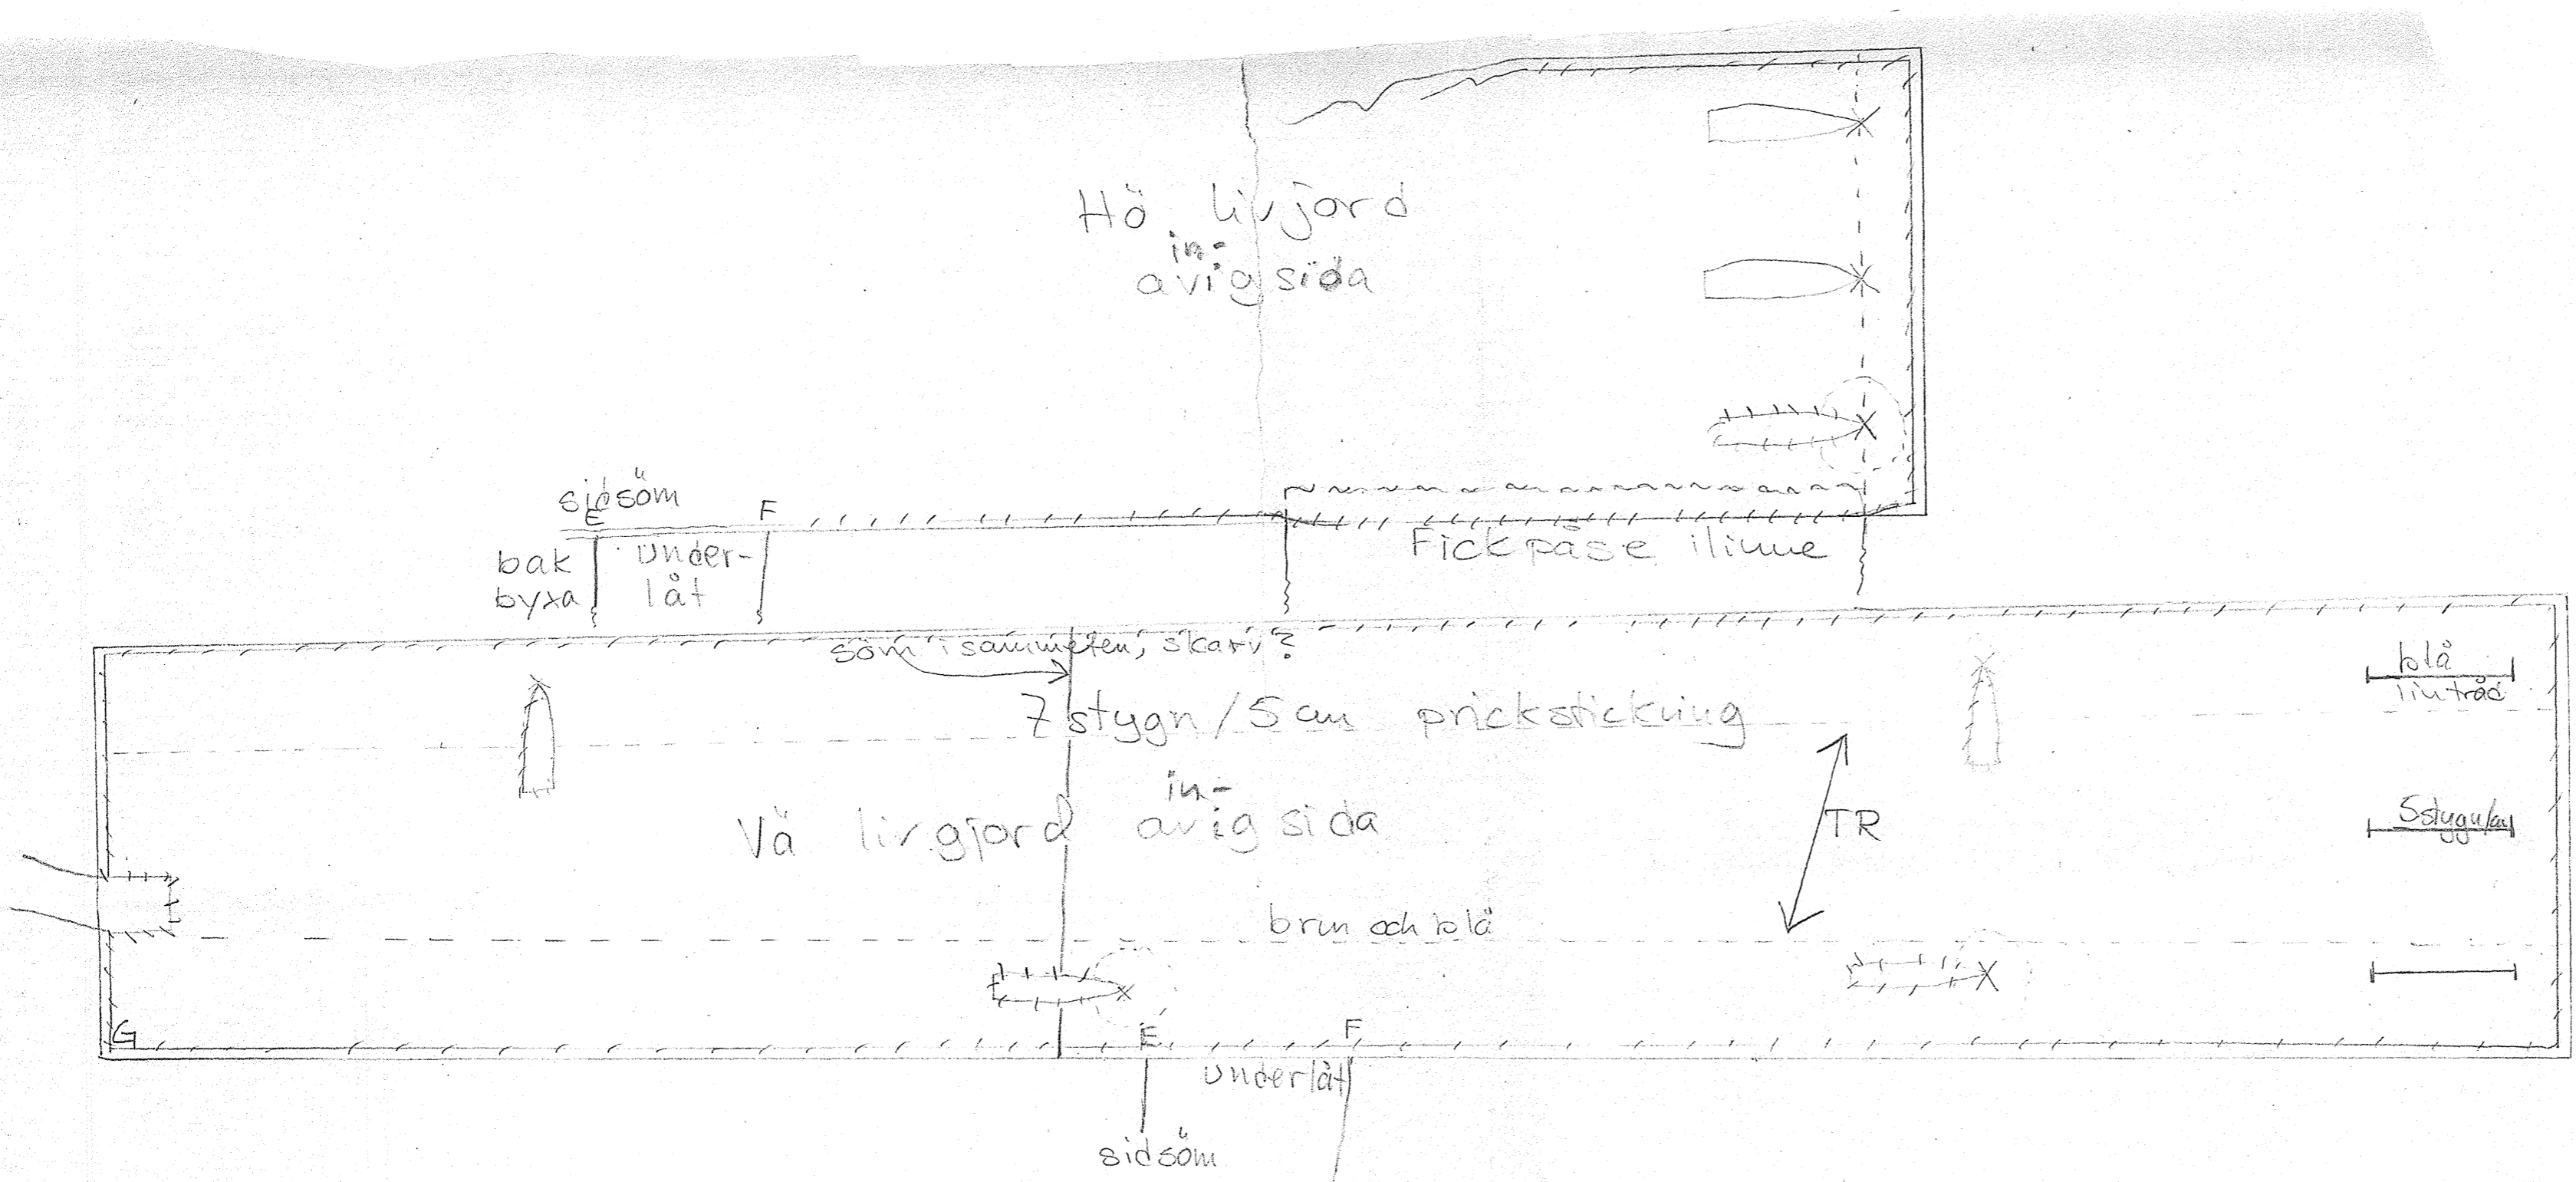 Hö livjord
in-
avigsida
sidsöm
E
F
bak
byxa
under-
låt
Fickpåse i linne
söm i sammeten, skarv?
7 stygn/5 cm prickstickning
blå
lintråd
in-
Vä livgjord avigsida
TR
5 stygn/cm
brun och blå
G
E
F
underlåt
sidsöm